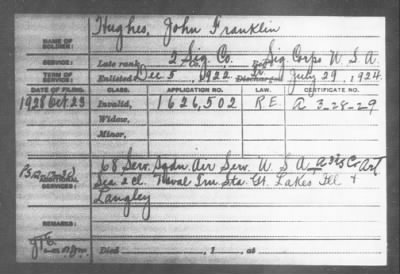 Hughes, John Franklin
NAME OF SOLDIER:
SERVICE: Late rank, 2 Sig. Co. Sig Corps U. S. A.
TERM OF SERVICE: Enlisted Dec 5, 1922 Discharged July 29, 1924
DATE OF FILING. CLASS. APPLICATION NO. LAW. CERTIFICATE NO.
1928 Oct. 23 Invalid, 1626,502 R.E. A 3-28-29
Widow,
Minor,
ADDITIONAL SERVICES: 68 Serv. Sqdn. Air Serv. U. S. A. Co Art
Sea 2 cl. Naval Trn Sta. Gt. Lakes Ill +
Langley
REMARKS:
Died , 1 , at